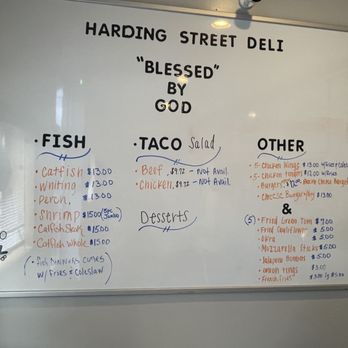 HARDING STREET DELI
"BLESSED"
BY
GOD
• FISH
• Catfish $13.00
• Whiting $13.00
• Perch, $13.00
• Shrimp $15.00
• Catfish Steak $15.00
• Catfish Whole $15.00
Fish Dinners comes
w/ Fries & Coleslaw
• TACO Salad
• Beef, $9.92 - Not Avail.
• Chicken, $9.92 - Not Avail.
Desserts
OTHER
5 • Chicken Wings $13.00 w/Fries &
5 • Chicken tenders $12.00 w/Fries
• Burgers, Cheese
• Cheese Burger $13.00
&
(5) • Fried Green Tom $7.00
• Fried Cauliflower $5.00
• Okra $5.00
• Mozzarella Sticks $6.00
• Jalapeno Bombers $5.00
• onion rings $3.00
• French fries $3.00 lg $5.00